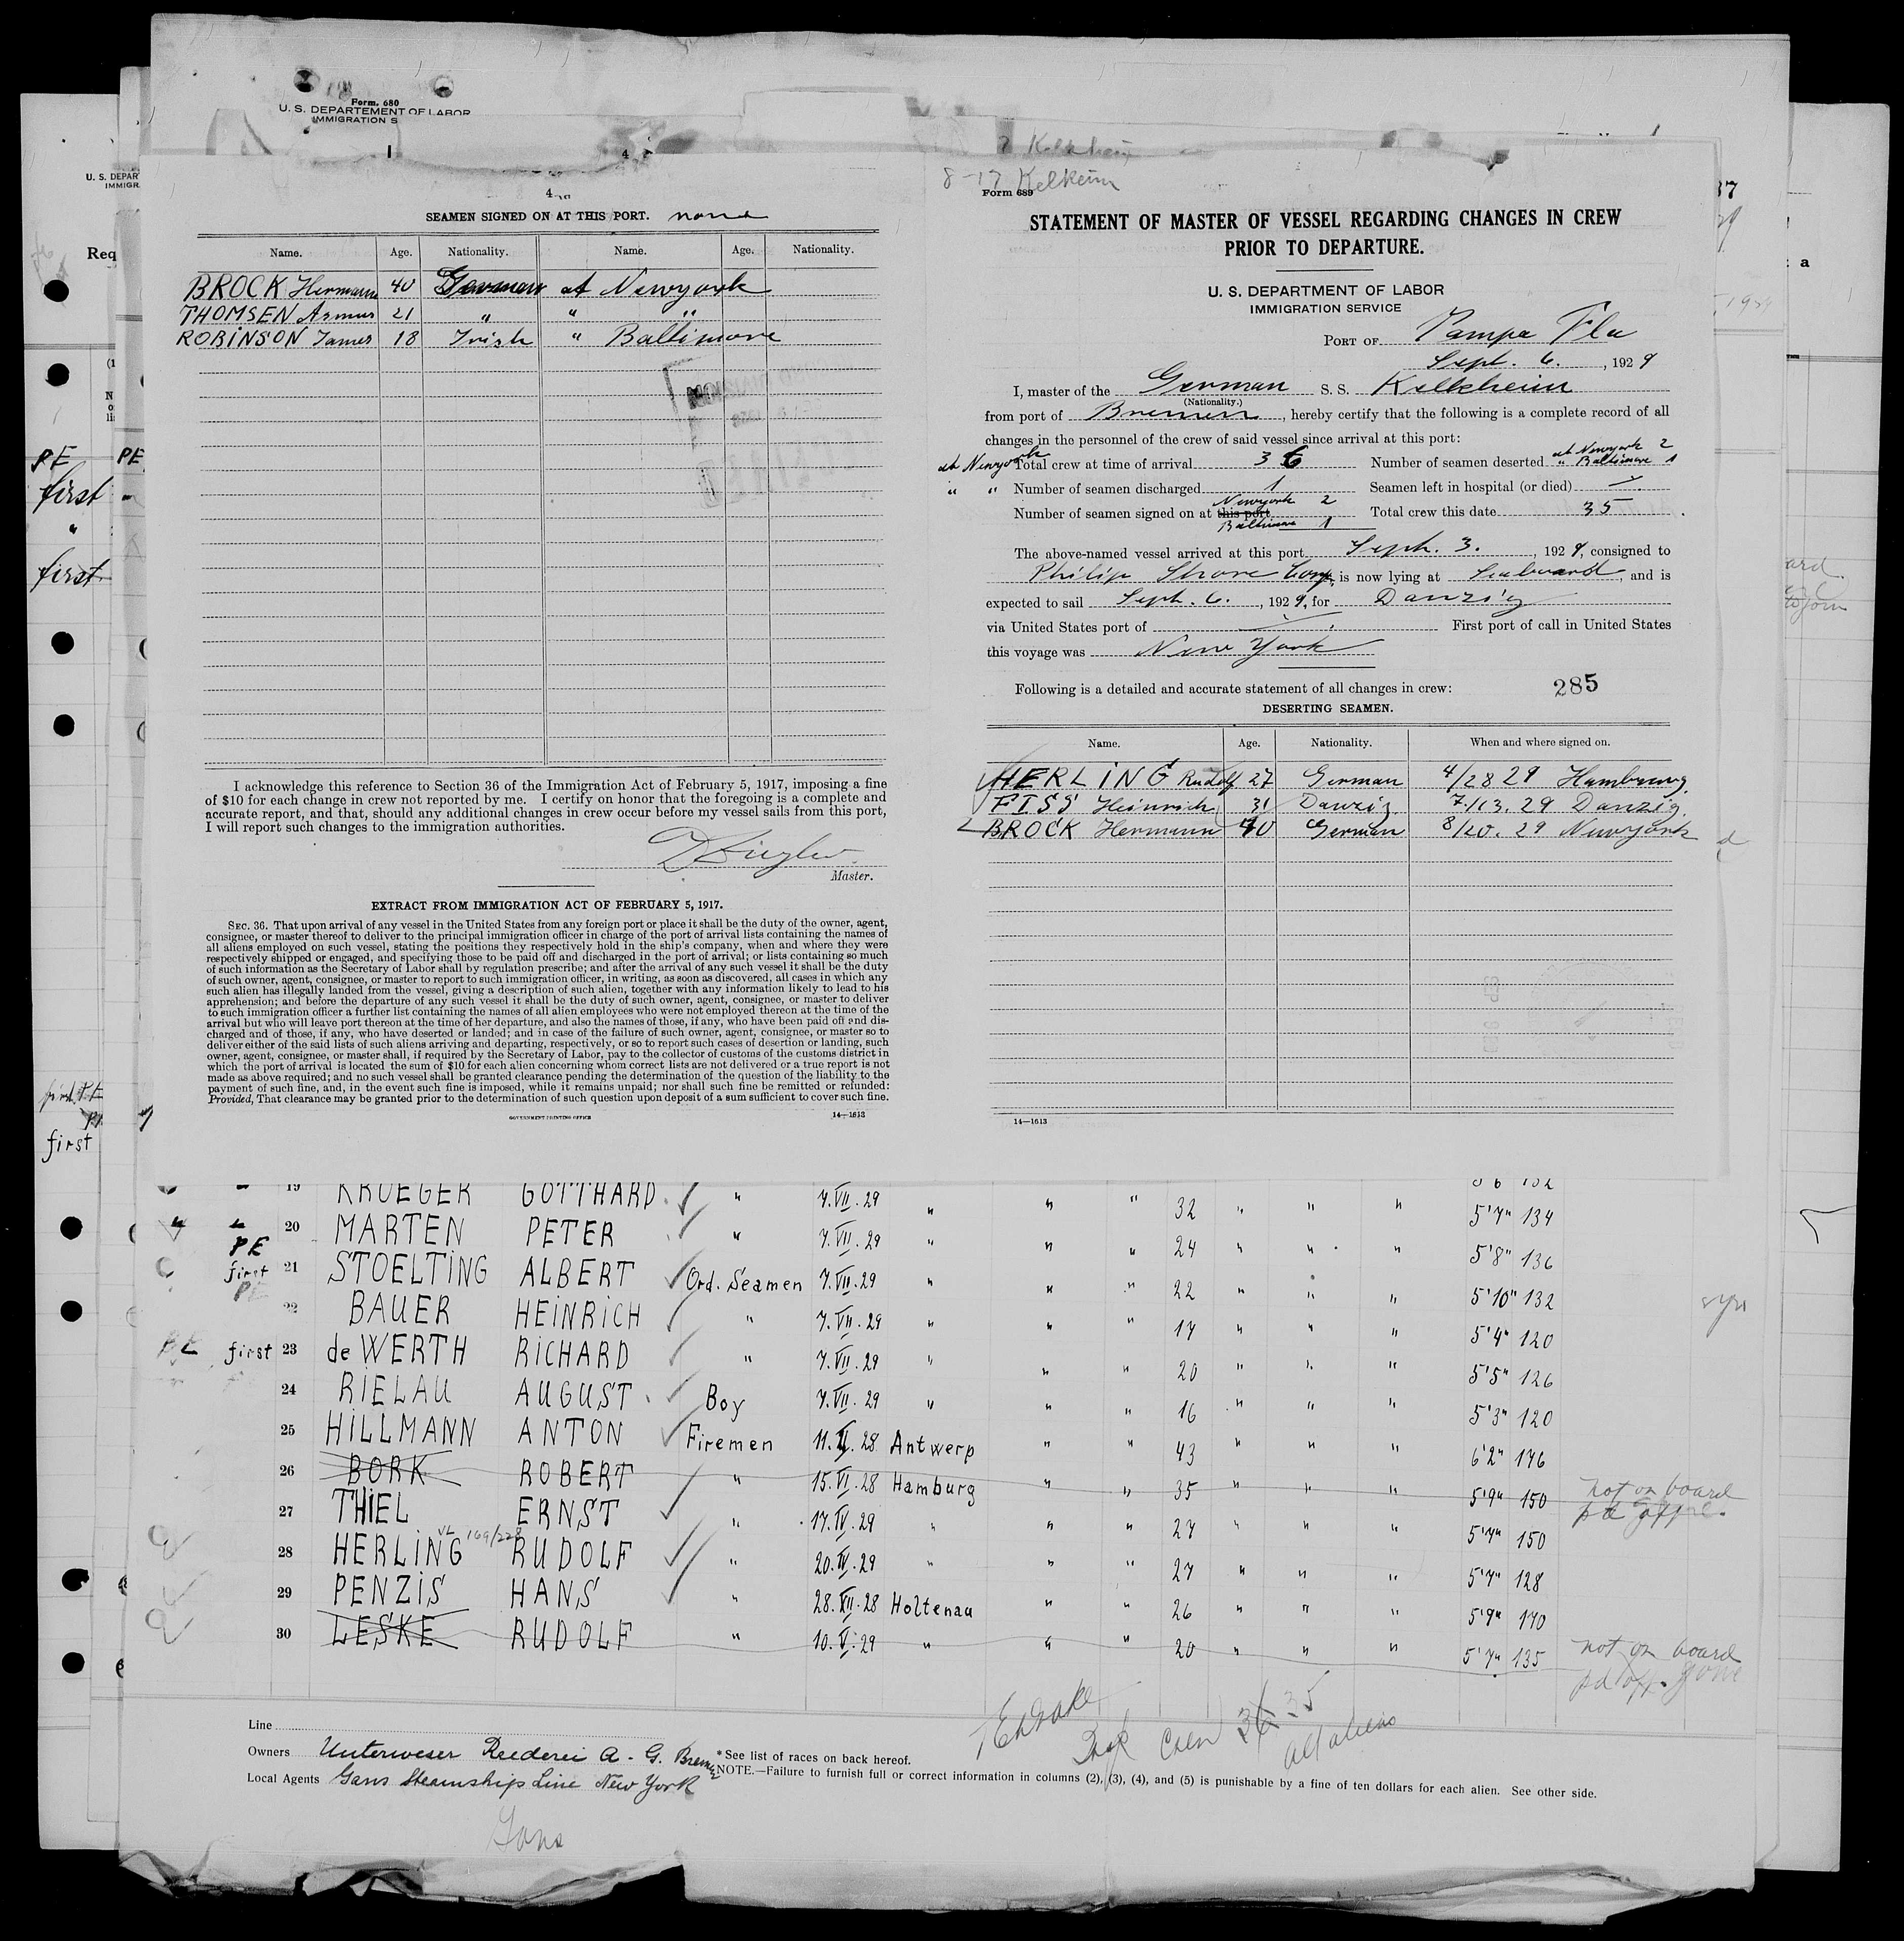 Form. 680
U. S. DEPARTEMENT OF LABOR
IMMIGRATION S
U. S. DEPAR
IMMIGR
Req
PE
first
"
first
first
4
SEAMEN SIGNED ON AT THIS PORT. none
Name. Age. Nationality. Name. Age. Nationality.
BROCK Hermann 40 German at Newyork
THOMSEN 21 " " "
ROBINSON James 18 Irish " Baltimore
I acknowledge this reference to Section 36 of the Immigration Act of February 5, 1917, imposing a fine
of $10 for each change in crew not reported by me. I certify on honor that the foregoing is a complete and
accurate report, and that, should any additional changes in crew occur before my vessel sails from this port,
I will report such changes to the immigration authorities.
Master.
EXTRACT FROM IMMIGRATION ACT OF FEBRUARY 5, 1917.
SEC. 36. That upon arrival of any vessel in the United States from any foreign port or place it shall be the duty of the owner, agent,
consignee, or master thereof to deliver to the principal immigration officer in charge of the port of arrival lists containing the names of
all aliens employed on such vessel, stating the positions they respectively hold in the ship's company, when and where they were
respectively shipped or engaged, and specifying those to be paid off and discharged in the port of arrival; or lists containing so much
of such information as the Secretary of Labor shall by regulation prescribe; and after the arrival of any such vessel it shall be the duty
of such owner, agent, consignee, or master to report to such immigration officer, in writing, as soon as discovered, all cases in which any
such alien has illegally landed from the vessel, giving a description of such alien, together with any information likely to lead to his
apprehension; and before the departure of any such vessel it shall be the duty of such owner, agent, consignee, or master to deliver
to such immigration officer a further list containing the names of all alien employees who were not employed thereon at the time of the
arrival but who will leave port thereon at the time of her departure, and also the names of those, if any, who have been paid off and dis-
charged and of those, if any, who have deserted or landed; and in case of the failure of such owner, agent, consignee, or master so to
deliver either of the said lists of such aliens arriving and departing, respectively, or so to report such cases of desertion or landing, such
owner, agent, consignee, or master shall, if required by the Secretary of Labor, pay to the collector of customs of the customs district in
which the port of arrival is located the sum of $10 for each alien concerning whom correct lists are not delivered or a true report is not
made as above required; and no such vessel shall be granted clearance pending the determination of the question of the liability to the
payment of such fine, and, in the event such fine is imposed, while it remains unpaid; nor shall such fine be remitted or refunded:
Provided, That clearance may be granted prior to the determination of such question upon deposit of a sum sufficient to cover such fine.
GOVERNMENT PRINTING OFFICE 14—1613
Kelkheim
8-17 Kelkeim
Form 689
STATEMENT OF MASTER OF VESSEL REGARDING CHANGES IN CREW
PRIOR TO DEPARTURE.
U. S. DEPARTMENT OF LABOR
IMMIGRATION SERVICE
PORT OF Tampa Fla
Sept. 6. , 1929
I, master of the German S. S. Kelkheim
(Nationality.)
from port of Bremen , hereby certify that the following is a complete record of all
changes in the personnel of the crew of said vessel since arrival at this port:
at Newyork Total crew at time of arrival 36 Number of seamen deserted at Newyork 2 " Baltimore 1
" " Number of seamen discharged 1 Seamen left in hospital (or died)
Number of seamen signed on at this port Newyork 2 Baltimore 1 Total crew this date 35
The above-named vessel arrived at this port Sept. 3. , 1929, consigned to
Philip Shore Corp, is now lying at Seaboard , and is
expected to sail Sept. 6. , 1929, for Danzig
via United States port of First port of call in United States
this voyage was New York
Following is a detailed and accurate statement of all changes in crew: 285
DESERTING SEAMEN.
Name. Age. Nationality. When and where signed on.
HERLING Rudolf 27 German 4/28 29 Hamburg.
FISS Heinrich 31 Danzig 7./13. 29 Danzig.
BROCK Hermann 40 German 8/20. 29 Newyork
14—1613
19 KRUEGER GOTTHARD " 7.VII.29 " " " 32 " " " 5'7" 134
20 MARTEN PETER " 7.VII.29 " " " 24 " " " 5'8" 136
PE first 21 STOELTING ALBERT Ord. Seamen 7.VII.29 " " " 22 " " " 5'10" 132
PE 22 BAUER HEINRICH " 7.VII.29 " " " 17 " " " 5'4" 120
PE first 23 de WERTH RICHARD " 7.VII.29 " " " 20 " " " 5'5" 126
24 RIELAU AUGUST Boy 7.VII.29 " " " 16 " " " 5'3" 120
25 HILLMANN ANTON Firemen 11. .28 Antwerp " " 43 " " " 6'2" 176
26 BORK ROBERT " 15.VI.28 Hamburg " " 35 " " " 5'9" 150 not on board
27 THIEL ERNST " 17.IV.29 " " " 27 " " " 5'7" 150
28 HERLING VL 169/228 RUDOLF " 20.IV.29 " " " 27 " " " 5'7" 128
29 PENZIS HANS " 28.XII.28 Holtenau " " 26 " " " 5'9" 170
30 LESKE RUDOLF " 10.V.29 " " " 20 " " " 5'7" 135 not on board
pd off. gone
36 35
all aliens
Line
Owners Unterweser Reederei A-G. Bremen
Local Agents Gans Steamship Line New York
*See list of races on back hereof.
NOTE.—Failure to furnish full or correct information in columns (2), (3), (4), and (5) is punishable by a fine of ten dollars for each alien. See other side.
Gans